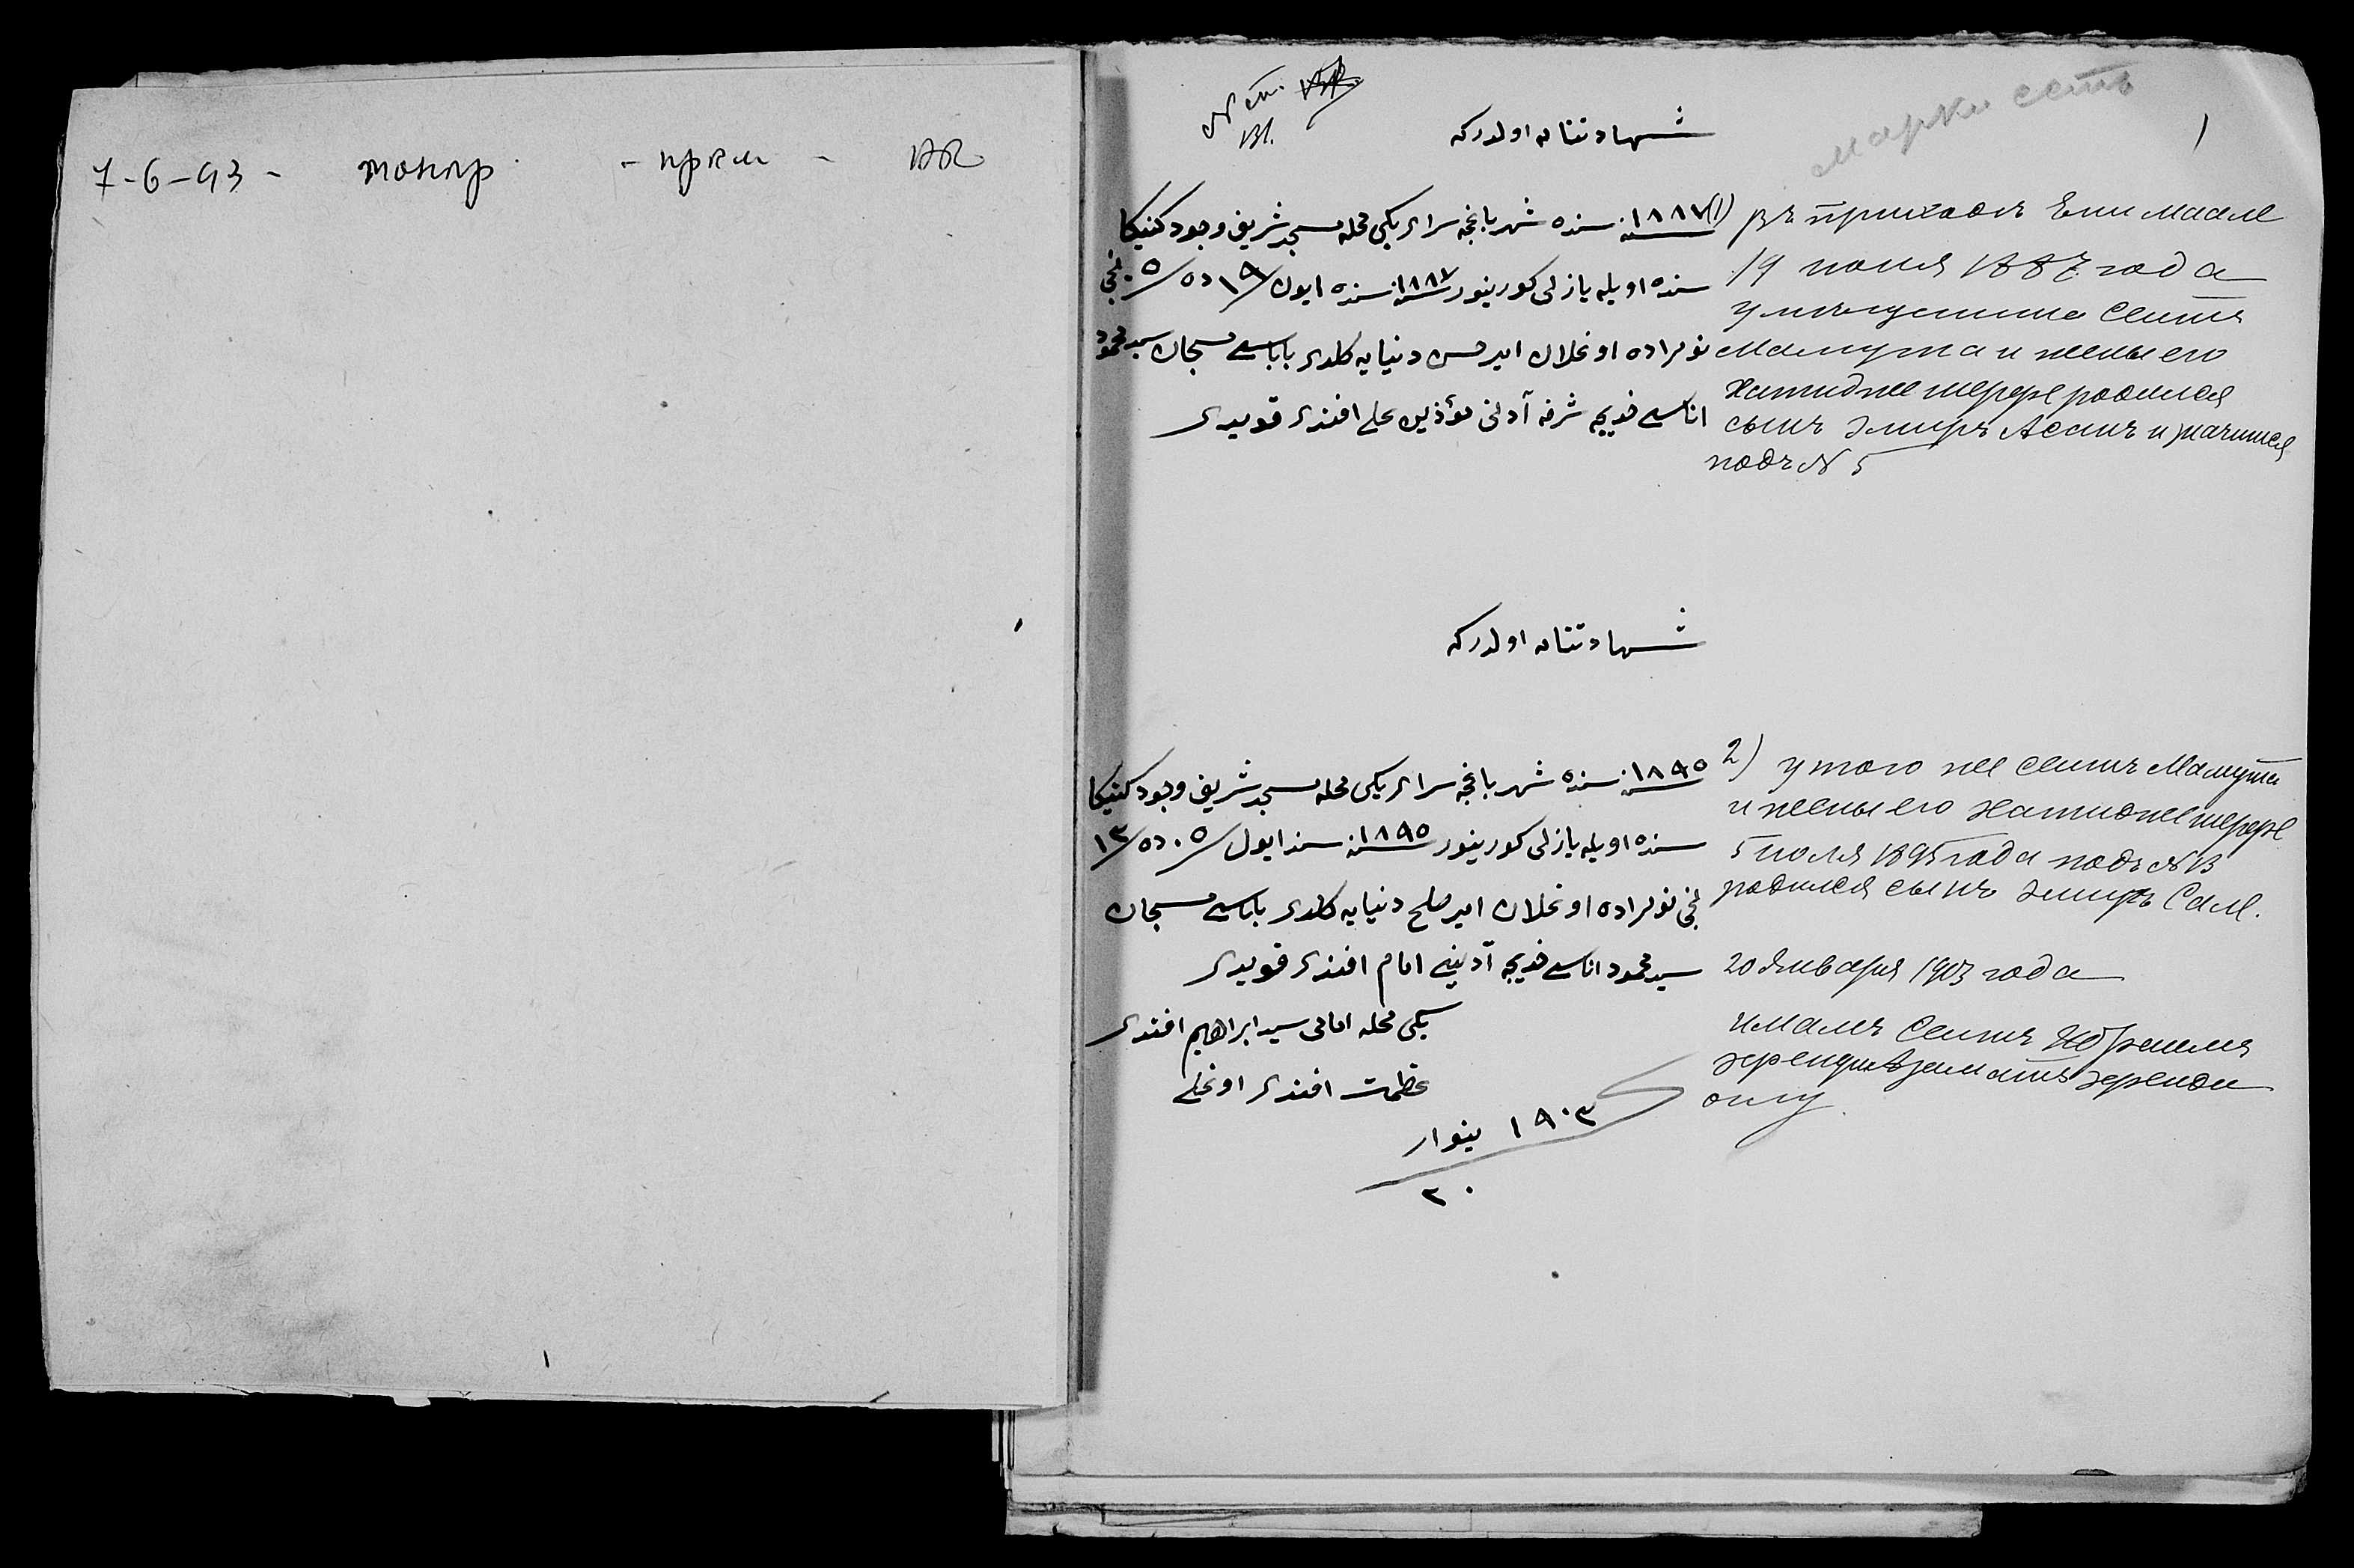 7-6-93 -
№ ст.
Марки есть
1
شهادتنامه اولدركه
١٨٨٧ سنه‌سنده شهر باغچه سراى يكى محله مسجد شريف وجود كنيكا
سنده اويله يازلى كورينور ١٨٨٧ سنه‌سنده ايون ١٩ ده ٥ نجى
نومراده اوغلان امير حسن دنيايه كلدى باباسى مسجان سيد محمود
اناسى خديجه شرفه آدنى مؤذين على افندى قويدى
1) Въ приходѣ Ени Маале
19 июня 1887 года
у мѣщанина Сеитъ
Мамута и жены его
Хатидже Шерфе родился
сынъ Эмиръ Асанъ и значится
подъ № 5
شهادتنامه اولدركه
١٨٩٥ سنه‌سنده شهر باغچه سراى يكى محله مسجد شريف وجود كنيكا
سنده اويله يازلى كورينور ١٨٩٥ سنه‌سندا ايول ٠٥ ده ١٣
نجى نومراده اوغلان امير صلح دنيايه كلدى باباسى مسجان
سيد محمود اناسى خديجه آدينى امام افندى قويدى
يكى محله امامى سيد ابراهيم افندى
عظمت افندى اوغلى
١٩٠٣ ينوار
٢٠
2) у того же Сеитъ Мамута
и жены его Хатидже Шерфе
5 июля 1895 года подъ № 13
родился сынъ Эмиръ Сали.
20 января 1903 года
Имамъ Сеитъ Ибраимъ
Эфенди Азаматъ Эфенди
оглу